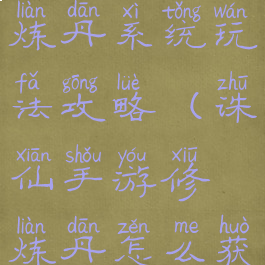 liàn dān xì tǒng wán
炼丹系统玩
fǎ gōng lüè zhū
法攻略（诛
xiān shǒu yóu xiū
仙手游修
liàn dān zěn me huò
炼丹怎么获